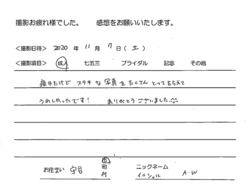 撮影お疲れ様でした。 感想をお願いいたします。
<撮影日時> 2020年 11月 7日 (土)
<撮影項目> 成人 七五三 ブライダル 記念 その他
疲れたけど ステキな写真をたくさんとってもらえて
うれしかったです! ありがとうございました
お住まい 守谷 ニックネーム
イニシャル A.W